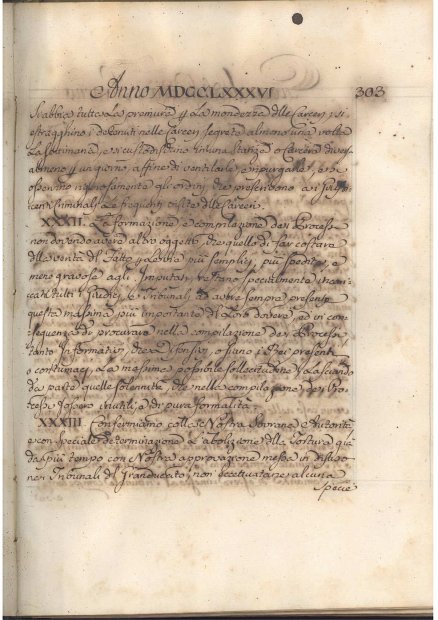 Anno MDCCLXXXVI 303
Si abbia tutta la premura p la mondezza delle Carceri, si
estragghino i detenuti nelle Carceri segrete almeno una volta
la Settimana, e si custodischino in una Stanza o Carcere diversa
almeno p un giorno, affine di ventilarle, e ripurgarle, e si
osservino rigorosamente gli ordini, che prescrivono ai Giusdi
centi Criminali le frequenti visite delle Carceri.
XXXII. La formazione e compilazione dei Processi
non dovendo avere altro oggetto, che quello di far costare
della verità del Fatto p le vie più semplici, più spedite, e
meno gravose agli Imputati, restano specialmente incari
cati tutti i Giudici e Tribunali di avere sempre presente
questa massima più importante di loro dovere, ed in con
seguenza di procurare nella compilazione dei Processi
tanto Informativi, che Difensivi, o siano i Rei presenti
o contumaci, la massima possibile sollecitudine, lasciando
da parte quelle solennità, che nella compilazione dei Pro
cessi fossero inutili, e di pura formalità
XXXIII. Confermiamo colla Nostra Sovrana Autorità
e con speciale determinazione l'abolizione della Tortura già
da più tempo con Nostra approvazione messa in disuso
nei Tribunali del Granducato, non eccettuatane alcuna
Specie